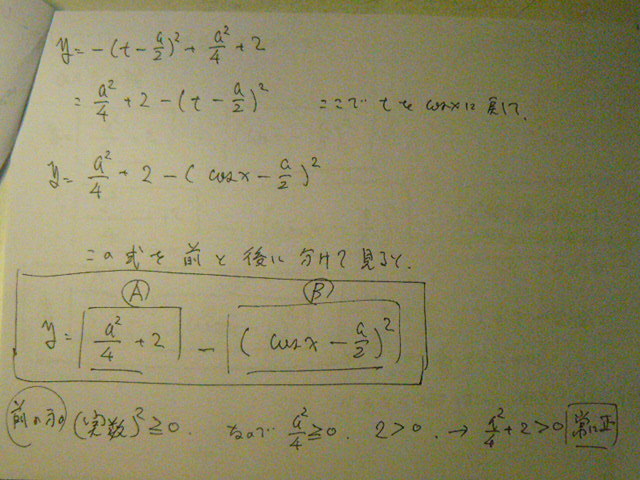 y = -(t - a/2)² + a²/4 + 2
= a²/4 + 2 - (t - a/2)² ここで tを cosxに 戻して、
y = a²/4 + 2 - (cosx - a/2)²
この式を 前と後に 分けて 見ると、
Ⓐ Ⓑ
y = a²/4 + 2 - (cosx - a/2)²
前の方の (実数)² ≥ 0. なので a²/4 ≥ 0. 2 > 0. → a²/4 + 2 > 0 常に正